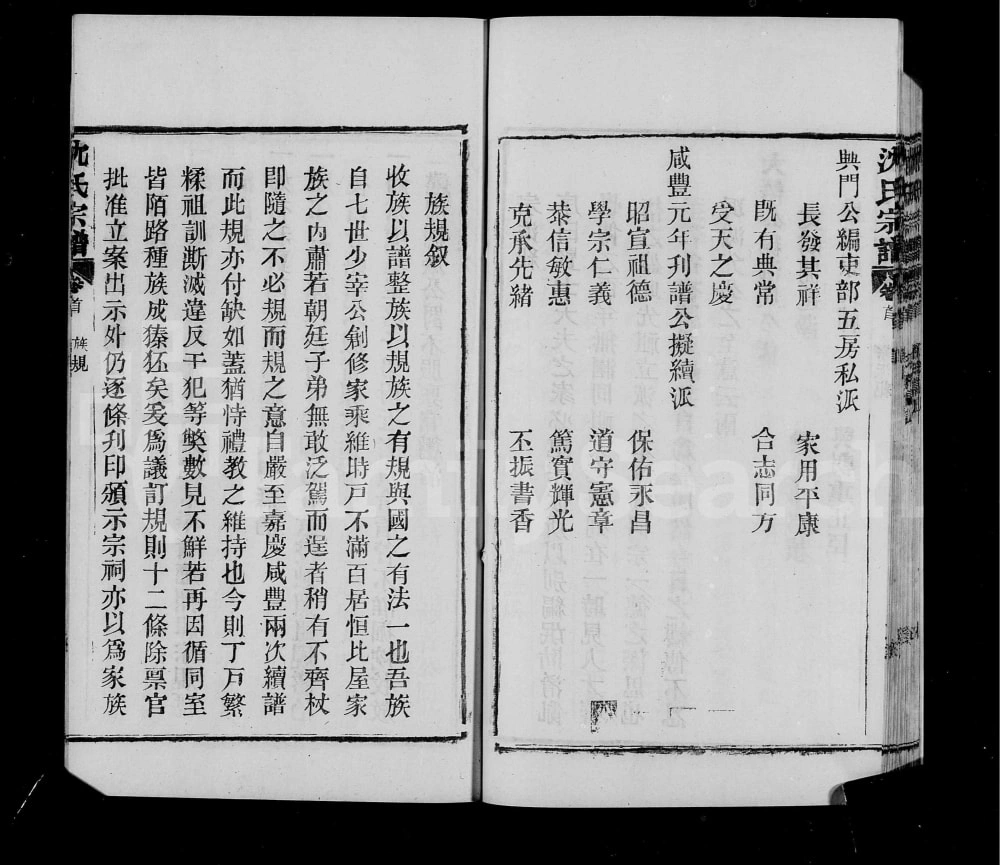 沈氏宗譜
卷首
興門公編吏部五房私派
長發其祥 家用平康
既有典常 合志同方
受天之慶
咸豐元年刋譜公擬續派
昭宣祖德 保佑永昌
學宗仁義 道守憲章
恭信敏惠 篤實輝光
克承先緒 丕振書香
族規叙
收族以譜整族以規族之有規與國之有法一也吾族
自七世少宰公創修家乘維時戸不滿百居恒比屋家
族之內肅若朝廷子弟無敢泛駕而逞者稍有不齊杖
卽隨之不必規而規之意自嚴至嘉慶咸豐兩次續譜
而此規亦付缺如蓋猶恃禮教之維持也今則丁戸繁
糅祖訓澌滅違反干犯等獘數見不鮮若再因循同室
皆陌路種族成獉狉矣爰爲議訂規則十二條除禀官
批准立案出示外仍逐條刋印頒示宗祠亦以爲家族
沈氏宗譜
卷首
族規